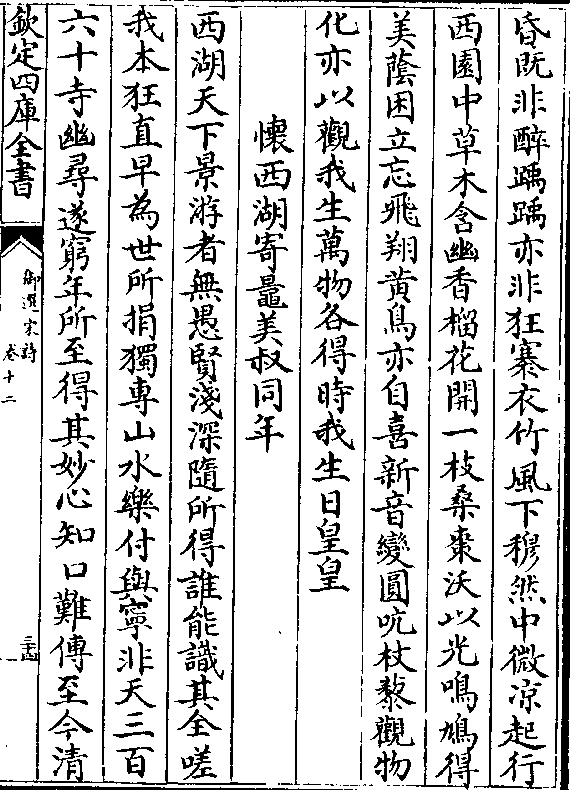 昏既非醉踽踽亦非狂褰衣竹風下穆然中微凉起行
西園中草木含幽香榴花開一枝桑棗沃以光鳴鳩得
美蔭困立忘飛翔黄鳥亦自喜新音變圓吭杖藜觀物
化亦以觀我生萬物各得時我生日皇皇
懷西湖寄鼂美叔同年
西湖天下景游者無愚賢淺深隨所得誰能識其全嗟
我本狂直早為世所捐獨專山水樂付與寧非天三百
六十寺幽尋遂窮年所至得其妙心知口難傳至今清
欽定四庫全書
御選宋詩
卷十二
三十四